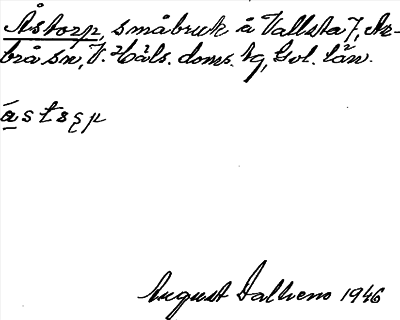 Åstorp, småbruk å Vallsta 7, Ar-
brå sn, V. Häls. doms. tg, Gvl. län.
á s t s ş p
August 1946